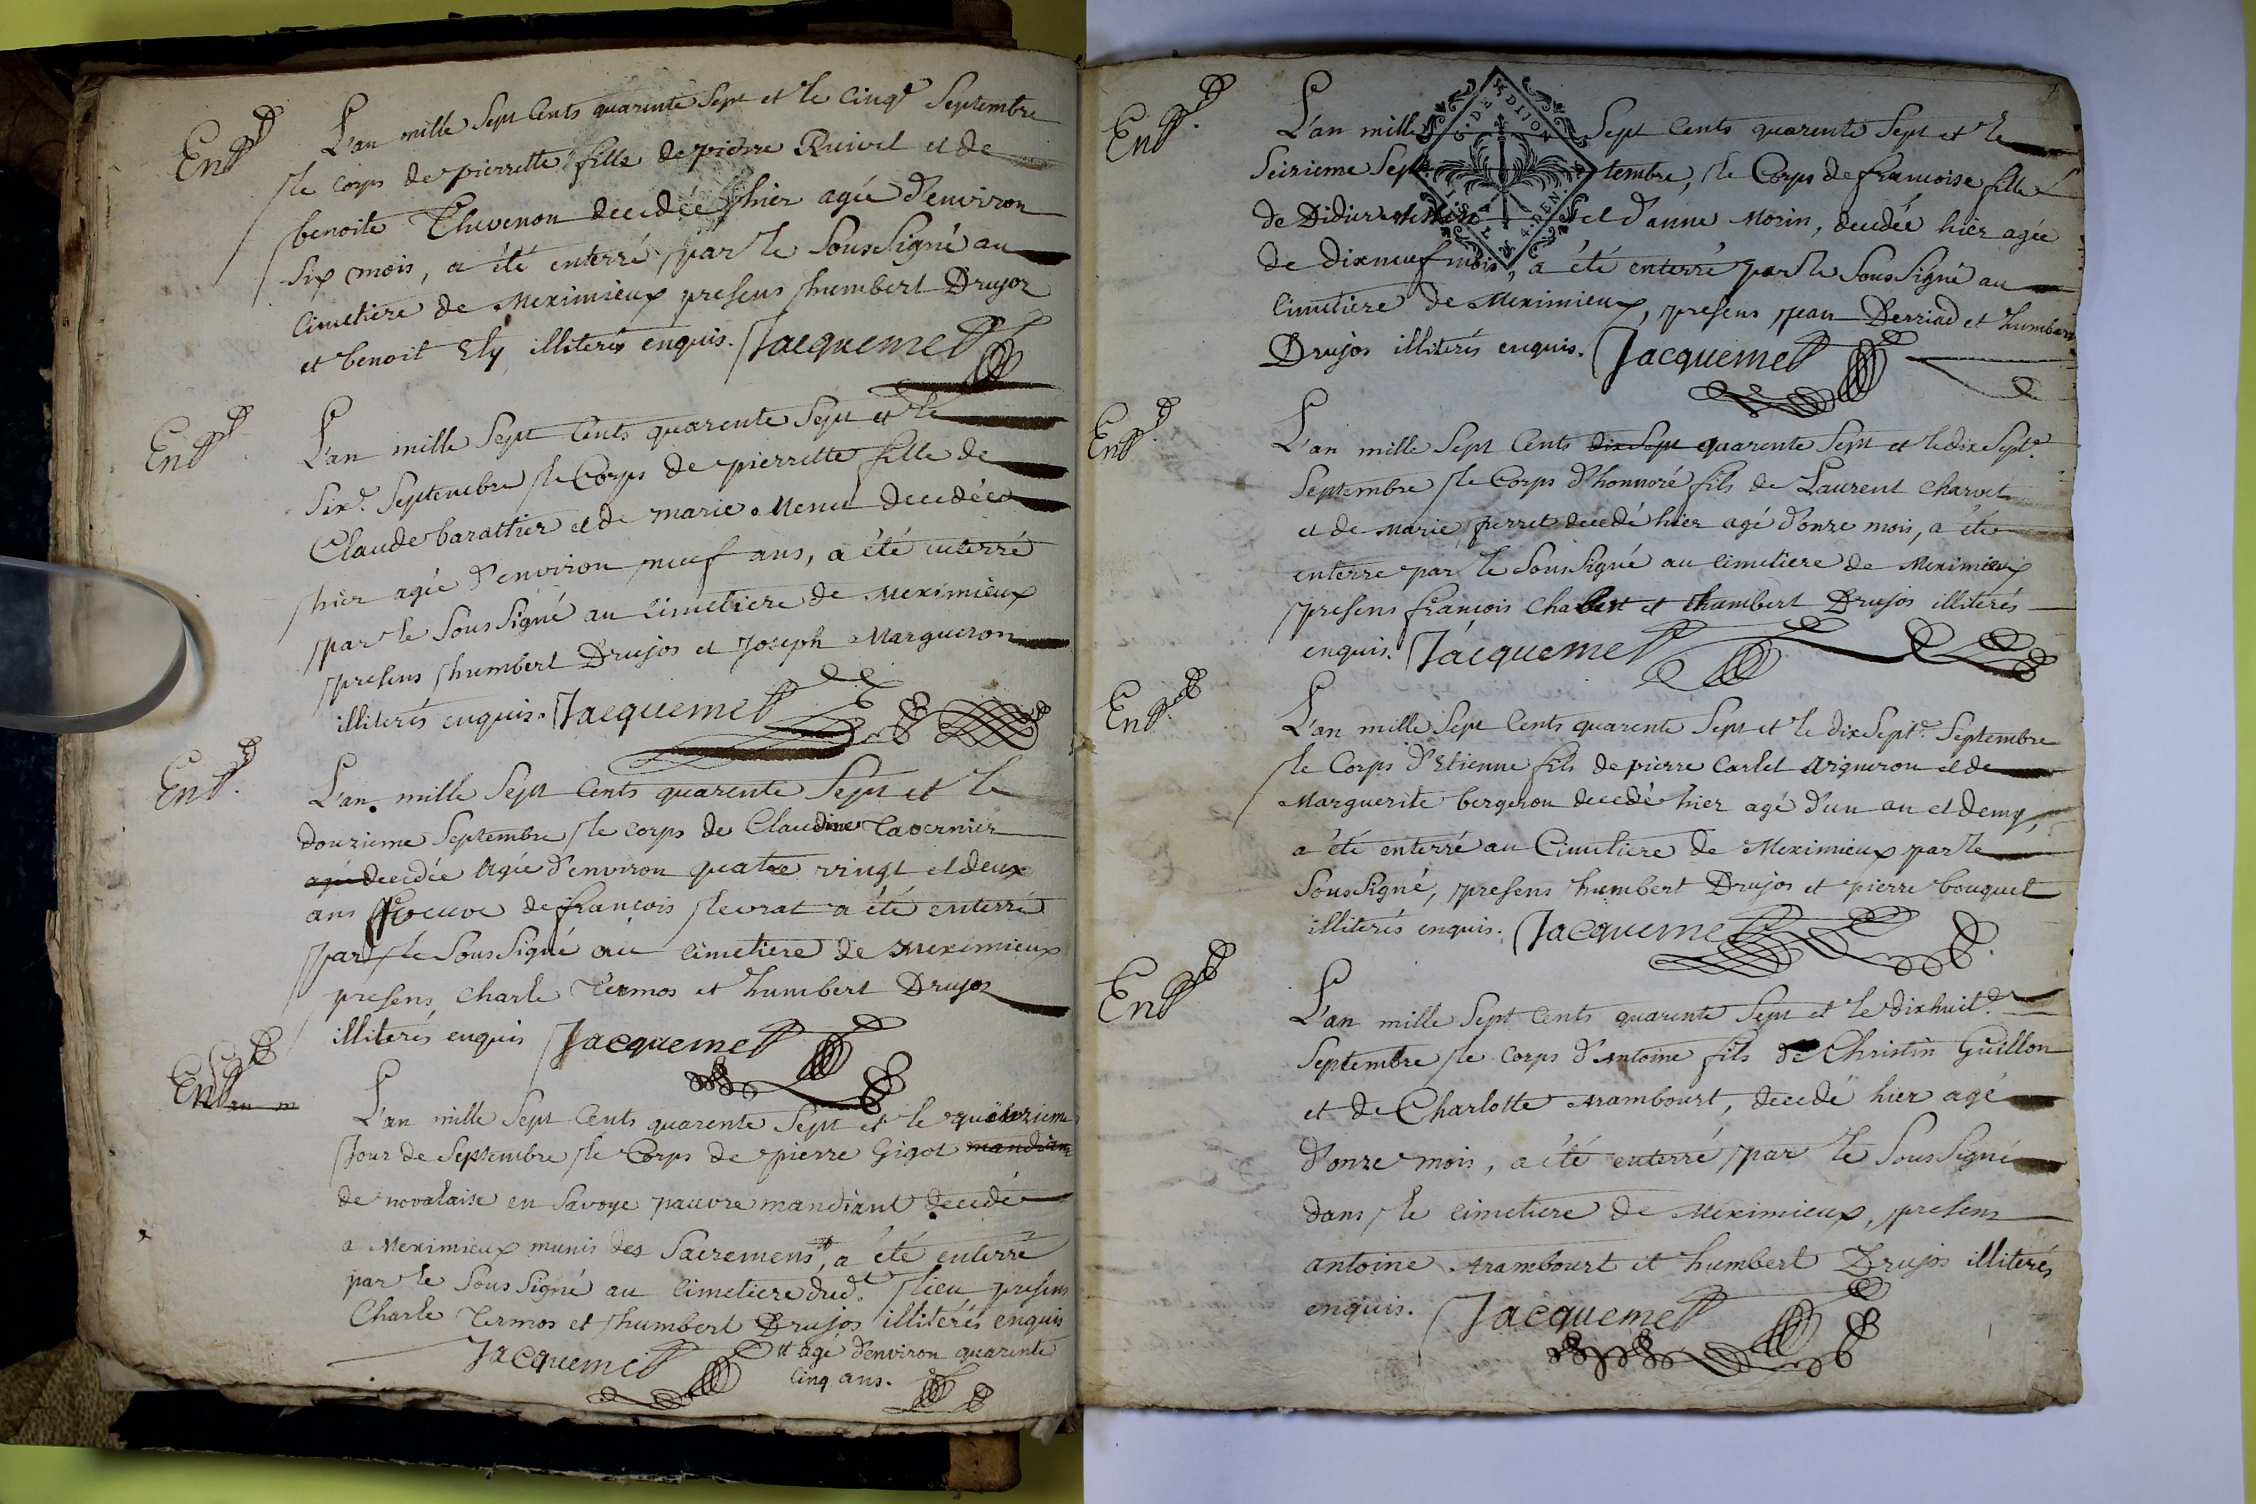 Ent.d
L'an mille Sept Cents quarente Sept et le Cinq.e Septembre
le corps de pierrette fille de pierre et de
benoite Thevenon decedée hier agée d'environ
Six mois, a été enterré par le Sous Signé au
cimetiere de Meximieux presens humbert Drujon
et benoit Ely illiterés enquis. Jacquemet
Ent.d
L'an mille Sept Cents quarente Sept et le
Six.e Septembre le Corps de pierrette fille de
Claude barattier et de marie Menu decedée
hier agée d'environ neuf ans, a été enterré
par le Sous Signé au cimetiere de Meximieux
presens humbert Drujos et Joseph Margueron
illiterés enquis. Jacquemet
Ent.d
L'an mille Sept Cents quarente Sept et le
douzieme Septembre le corps de Claudine Tavernier
agée decedée Agée d'environ quatre vingt et deux
ans veuve de françois levrat a été enterré
par le Sous Signé au cimetiere de Meximieux
presens, Charle Termos et humbert Drujos
illiterés enquis Jacquemet
Ent.d
L'an mille Sept Cents quarente Sept et le quatorzieme
Jour de Septembre le Corps de pierre Gigot mandiant
de novalaise en Savoye pauvre mandiant decedé
a Meximieux munis des Sacremens, a été enterré
par le Sous Signé au cimetiere dud.t lieu presens
Charle Termos et humbert Drujos illiterés enquis
Jacquemet et agé d'environ quarente
Cinq ans.
Ent.d
G. DE DIJON
4. DEN.
L'an mille Sept Cents quarente Sept et le
Seizieme Septembre, le Corps de francoise fille
de Didier et d'anne Morin, decedée hier agée
de dixneuf mois, a été enterré par le Sous Signé au
Cimetiere de Meximieux, presens jean Derriad et humbert
Drujos illiterés enquis. Jacquemet
Ent.d
L'an mille Sept Cents dix Sept quarente Sept et le dix Sept.e
Septembre le Corps d'honnoré fils de Laurent Charvet
et de Marie perret decedé hier agé d'onze mois, a été
enterré par le Sous Signé au cimetiere de Meximieux
presens françois Chabert et humbert Drujos illiterés
enquis. Jacquemet
Ent.d
L'an mille Sept Cents quarente Sept et le dix Sept.e Septembre
le Corps d'Etienne fils de pierre Carlet vigneron et de
Marguerite bergeron decedé hier agé d'un an et demy,
a été enterré au Cimetiere de Meximieux par le
Sous Signé, presens humbert Drujos et pierre bouquet
illiterés enquis. Jacquemet
Ent.d
L'an mille Sept Cents quarente Sept et le dixhuit.e
Septembre le corps d'Antoine fils de Christin Guillon
et de Charlotte Arambourt, decedé hier agé
d'onze mois, a été enterré par le Sous Signé
dans le cimetiere de Meximieux, presens
antoine Arambourt et humbert Drujos illiterés
enquis. Jacquemet